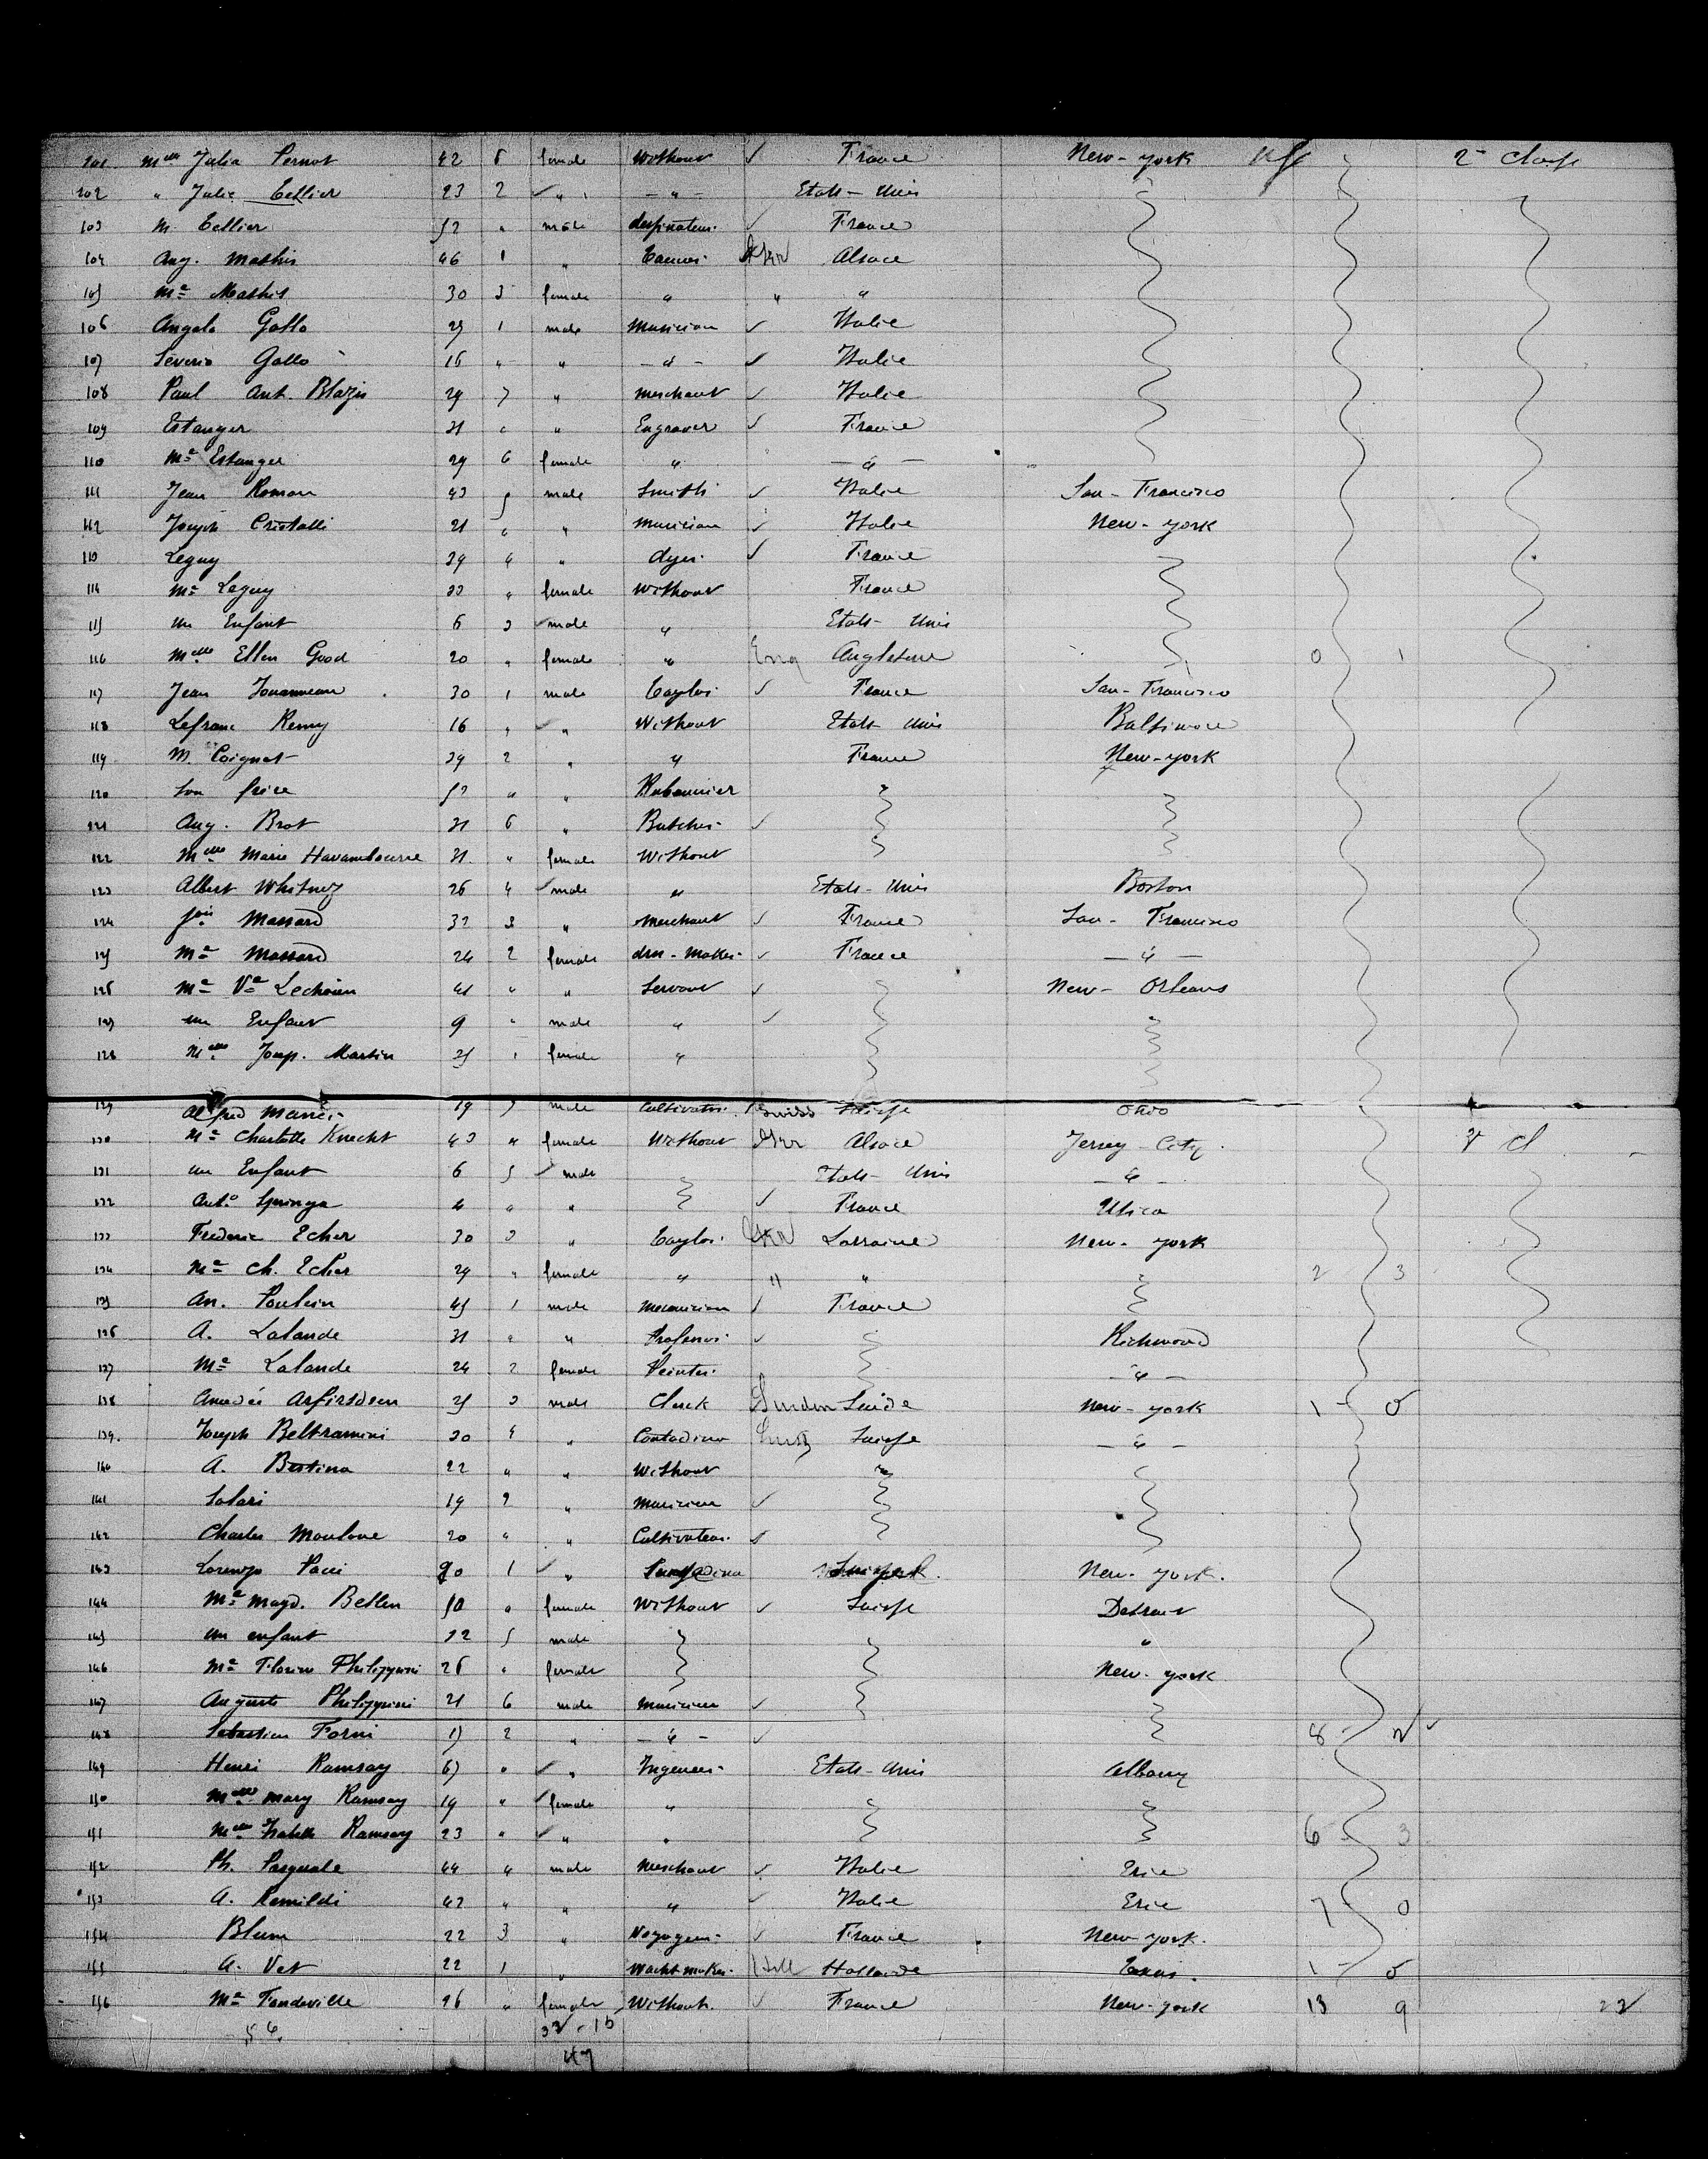 101 Melle Julia Pernot 42 6 female Without ✓ France New-york 2e classe
102 " Julie Cellier 23 2 ✓ " - " - Etats-Unis
103 M. Cellier 52 " male ✓ France
104 Aug. Mathis 46 1 " Tanner Ger Alsace
105 Me Mathis 30 3 female " " "
106 Angelo Gallo 25 1 male Musician ✓ Italie
107 Séverio Gallo 16 " " - " - ✓ Italie
108 Paul Ant. Blazis 29 7 " merchant ✓ Italie
109 Estanger 31 " " Engraver ✓ France
110 Me Estanger 29 6 female " - " -
111 Jean Roman 43 5 male Smith ✓ Italie San-Francisco
112 Joseph Cristalli 21 " " musician ✓ Italie New-york
113 Leguy 39 " " dyer ✓ France
114 Me Leguy 33 " female Without France
115 un Enfant 6 3 ✓ male " Etats-Unis
116 Melle Ellen Good 20 " female " Eng Angleterre 0 1
117 Jean Jouanneau 30 1 male Taylor ✓ France San-Francisco
118 Lefranc Remy 16 " ✓ " Without Etats-Unis Baltimore
119 M. Coignet 39 2 " " France New-york
120 Son frère 52 " " Rubannier
121 Aug. Brot 31 6 " Butcher ✓
122 Melle Marie 31 " female Without
123 Albert Whitney 26 4 ✓ male " Etats-Unis Boston
124 Massard 32 3 " merchant ✓ France San-Francisco
125 Me Massard 24 2 female dres-maker ✓ France - " -
126 Me Ve Lechoien 41 " " Servant ✓ New-Orleans
127 un Enfant 9 " male " ✓
128 Melle Josep. Martin 25 1 female "
129 Alfred 19 7 male Cultivator Swiss Suisse Ohio
130 Me Charlotte Knecht 43 " female Without Ger Alsace Jersey-City. 2e cl
131 un Enfant 6 5 ✓ male Etats-Unis - " -
132 Anto. Springa 4 " " ✓ France Utica
133 Frederic Echer 30 3 " Taylor Ger Lorraine New-york
134 Me Ch. Echer 29 " female " " " 2 3
135 An. Poulain 45 1 male mecanician ✓ France
136 A. Lalande 31 " " Professor ✓ Richmond
137 Me Lalande 24 2 female Peinter - " -
138 Amédée 25 3 male Clerck Sweden Suède New-york 1 - 0
139. Joseph Beltramini 30 4 " Contadino Suisse - " -
140 A. Bertina 22 " " Without "
141 Solari 19 2 " musician ✓
142 Charles 20 " " Cultivateur ✓
143 Lorenzo Pacci 1 ✓ " New-york.
144 Me Magd. Betlen 50 " female Without ✓ Suisse Detroit
145 un enfant 5 male "
146 Me Florine Philippini 26 " female New-york
147 Auguste Philippini 21 6 male musician ✓
148 Sebastien Forni 17 2 " - " - ✓ 8 - 2 ✓
149 Henri Ramsay 67 " ✓ " Ingeneer Etats-Unis Albany
150 Melle mary Ramsay 19 " ✓ female "
151 Melle Isabelle Ramsay 23 " ✓ " " 6 - 3
152 Ph. Pasquale 44 " male Merchant ✓ Italie Erie
153 A. Ramildi 42 " " " ✓ Italie Erie 7 - 0
154 Blum 22 3 " Voyageur ✓ France New-york.
155 A. Vet 22 1 " Wachtmaker Holl Hollande Texas. 1 - 0
156 Me Tandeville 26 " female Without. ✓ France New-york 13 9 22
56. 32 - 15
47